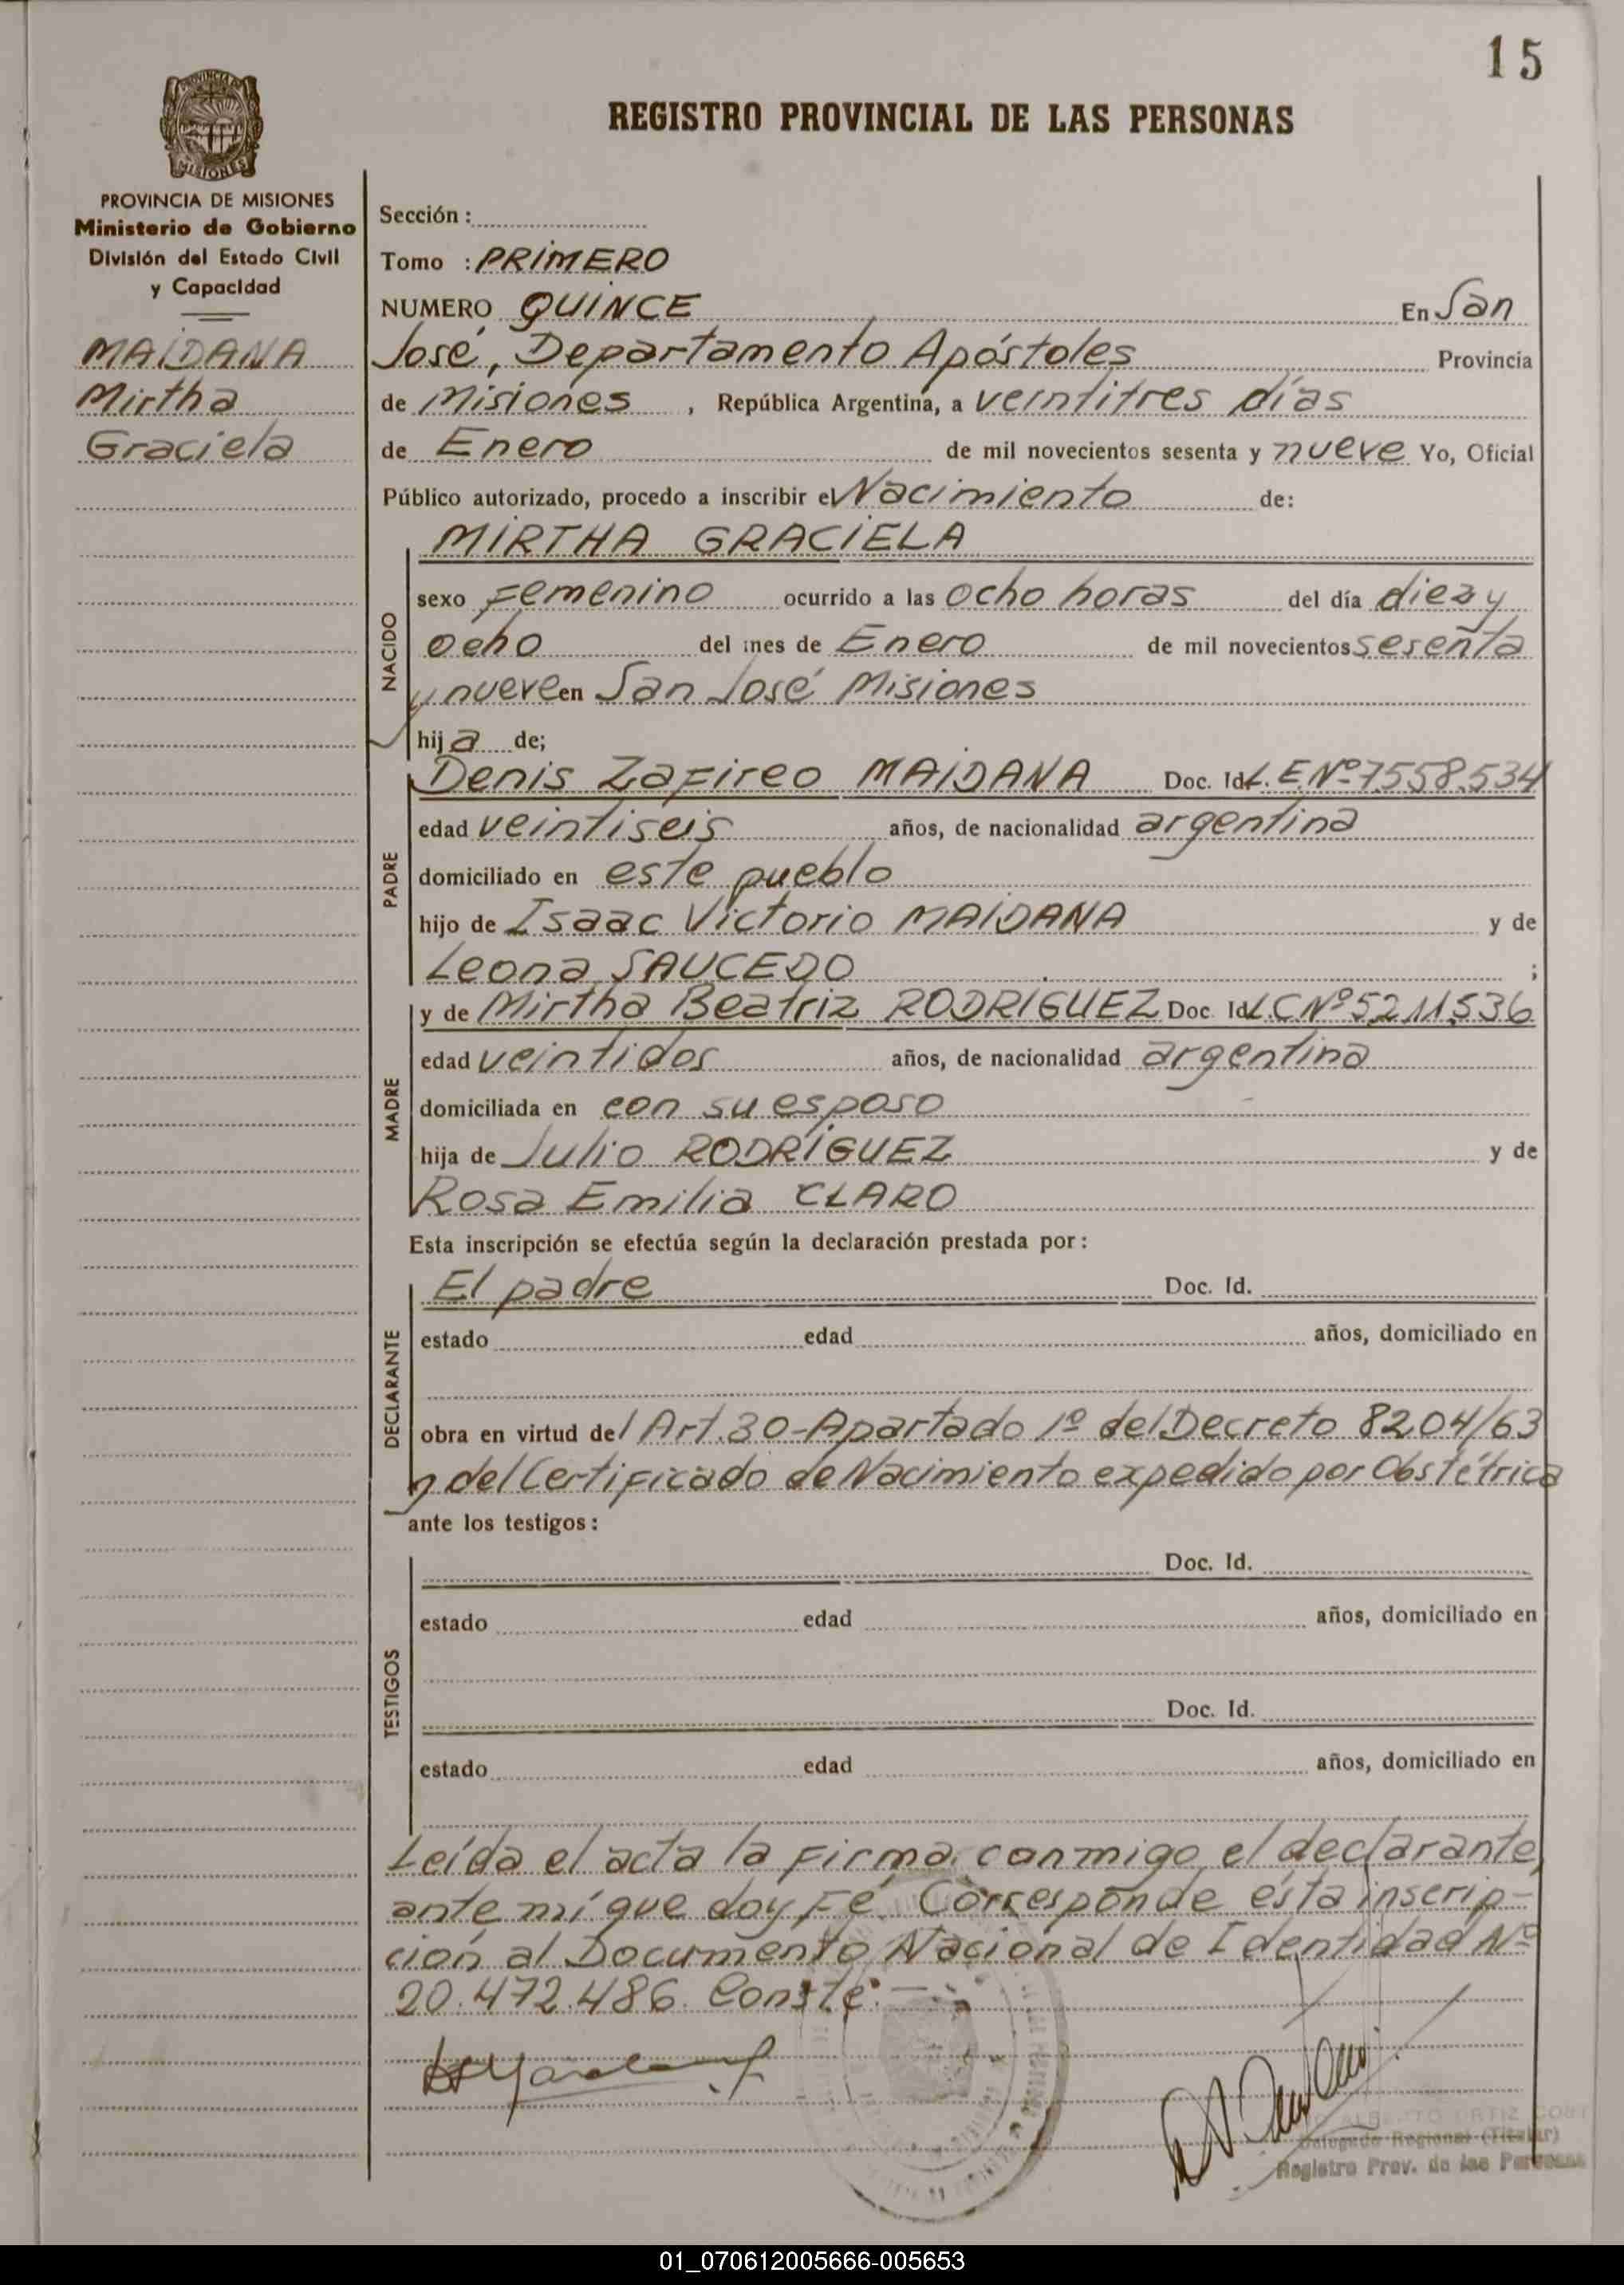 15
PROVINCIA DE
MISIONES
REGISTRO PROVINCIAL DE LAS PERSONAS
PROVINCIA DE MISIONES
Ministerio de Gobierno
División del Estado Civil
y Capacidad
MAIDANA
Mirtha
Graciela
Sección :
Tomo : PRIMERO
NUMERO QUINCE En San
José, Departamento Apóstoles Provincia
de Misiones , República Argentina, a veintitres días
de Enero de mil novecientos sesenta y nueve Yo, Oficial
Público autorizado, procedo a inscribir el Nacimiento de:
MIRTHA GRACIELA
NACIDO
sexo Femenino ocurrido a las ocho horas del día diez y
ocho del mes de Enero de mil novecientos sesenta
y nueve en San José Misiones
hija de;
PADRE
Denis Zafireo MAIDANA Doc. Id L.E Nº 7.558.534
edad veintiseis años, de nacionalidad argentina
domiciliado en este pueblo
hijo de Isaac Victorio MAIDANA y de
Leona SAUCEDO ;
MADRE
y de Mirtha Beatriz RODRIGUEZ Doc. Id L.C Nº 5.211.536
edad veintidos años, de nacionalidad argentina
domiciliada en con su esposo
hija de Julio RODRÍGUEZ y de
Rosa Emilia CLARO
Esta inscripción se efectúa según la declaración prestada por :
DECLARANTE
El padre Doc. Id.
estado edad años, domiciliado en
obra en virtud del Art. 30-Apartado 1º del Decreto 8204/63
y del Certificado de Nacimiento expedido por Obstétrica
ante los testigos :
TESTIGOS
Doc. Id.
estado edad años, domiciliado en
Doc. Id.
estado edad años, domiciliado en
Leída el acta la firma conmigo el declarante,
ante mí que doy fé. Corresponde ésta inscrip-
ción al Documento Nacional de Identidad Nº
20.472.486. Conste.-
ALBERTO ORTIZ
Delegado Regional (Titular)
Registro Prov. de las Personas
01_070612005666-005653